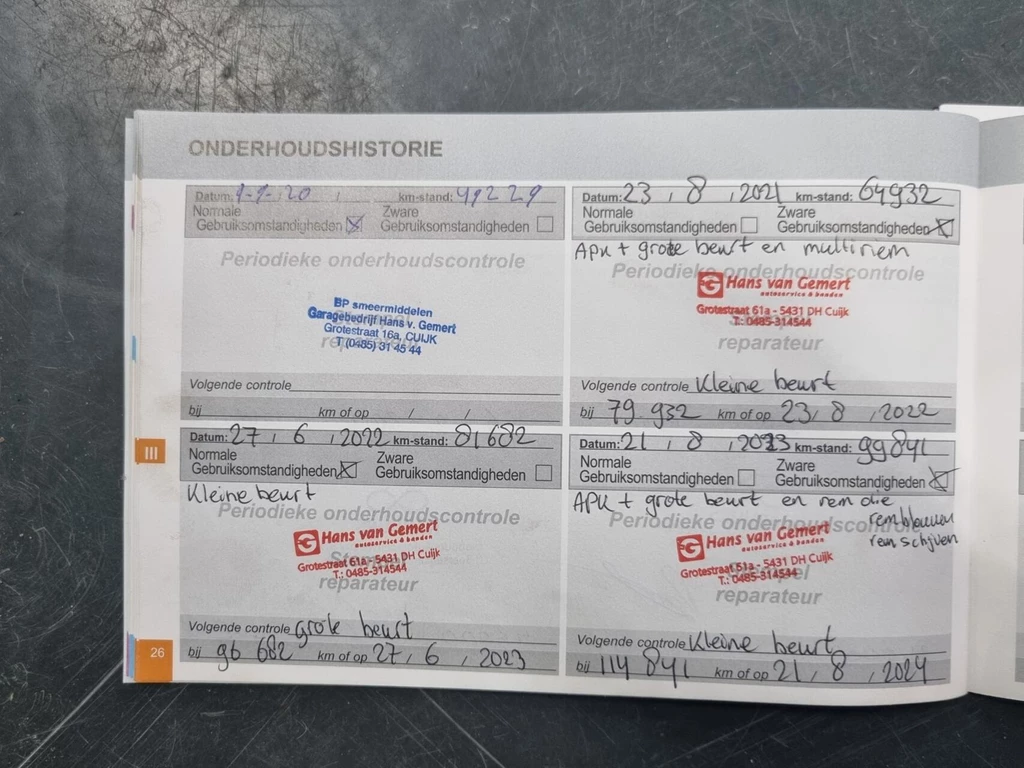 ONDERHOUDSHISTORIE
Datum: 9-9-20 / km-stand: 49229
Normale Gebruiksomstandigheden ☒ Zware Gebruiksomstandigheden ☐
Periodieke onderhoudscontrole
BP smeermiddelen
Garagebedrijf Hans v. Gemert
Grotestraat 16a, CUIJK
T (0485) 31 45 44
Volgende controle
bij km of op / /
Datum: 23 / 8 / 2021 km-stand: 64932
Normale Gebruiksomstandigheden ☐ Zware Gebruiksomstandigheden ☒
APK + grote beurt en multiriem
Periodieke onderhoudscontrole
Hans van Gemert
autoservice & banden
Grotestraat 61a - 5431 DH Cuijk
T.: 0485-314544
reparateur
Volgende controle Kleine beurt
bij 79.932 km of op 23/ 8 / 2022
Datum: 27 / 6 / 2022 km-stand: 81682
Normale Gebruiksomstandigheden ☒ Zware Gebruiksomstandigheden ☐
Kleine beurt
Periodieke onderhoudscontrole
Hans van Gemert
autoservice & banden
Grotestraat 61a - 5431 DH Cuijk
T.: 0485-314544
reparateur
Volgende controle grote beurt
bij 96 682 km of op 27 / 6 / 2023
Datum: 21 / 8 / 2023 km-stand: 99841
Normale Gebruiksomstandigheden ☐ Zware Gebruiksomstandigheden ☒
APK + grote beurt en rem die
remblokken
remschijven
Periodieke onderhoudscontrole
Hans van Gemert
autoservice & banden
Grotestraat 61a - 5431 DH Cuijk
T.: 0485-314544
Stempel
reparateur
Volgende controle Kleine beurt
bij 114 841 km of op 21 / 8 / 2024
III
26